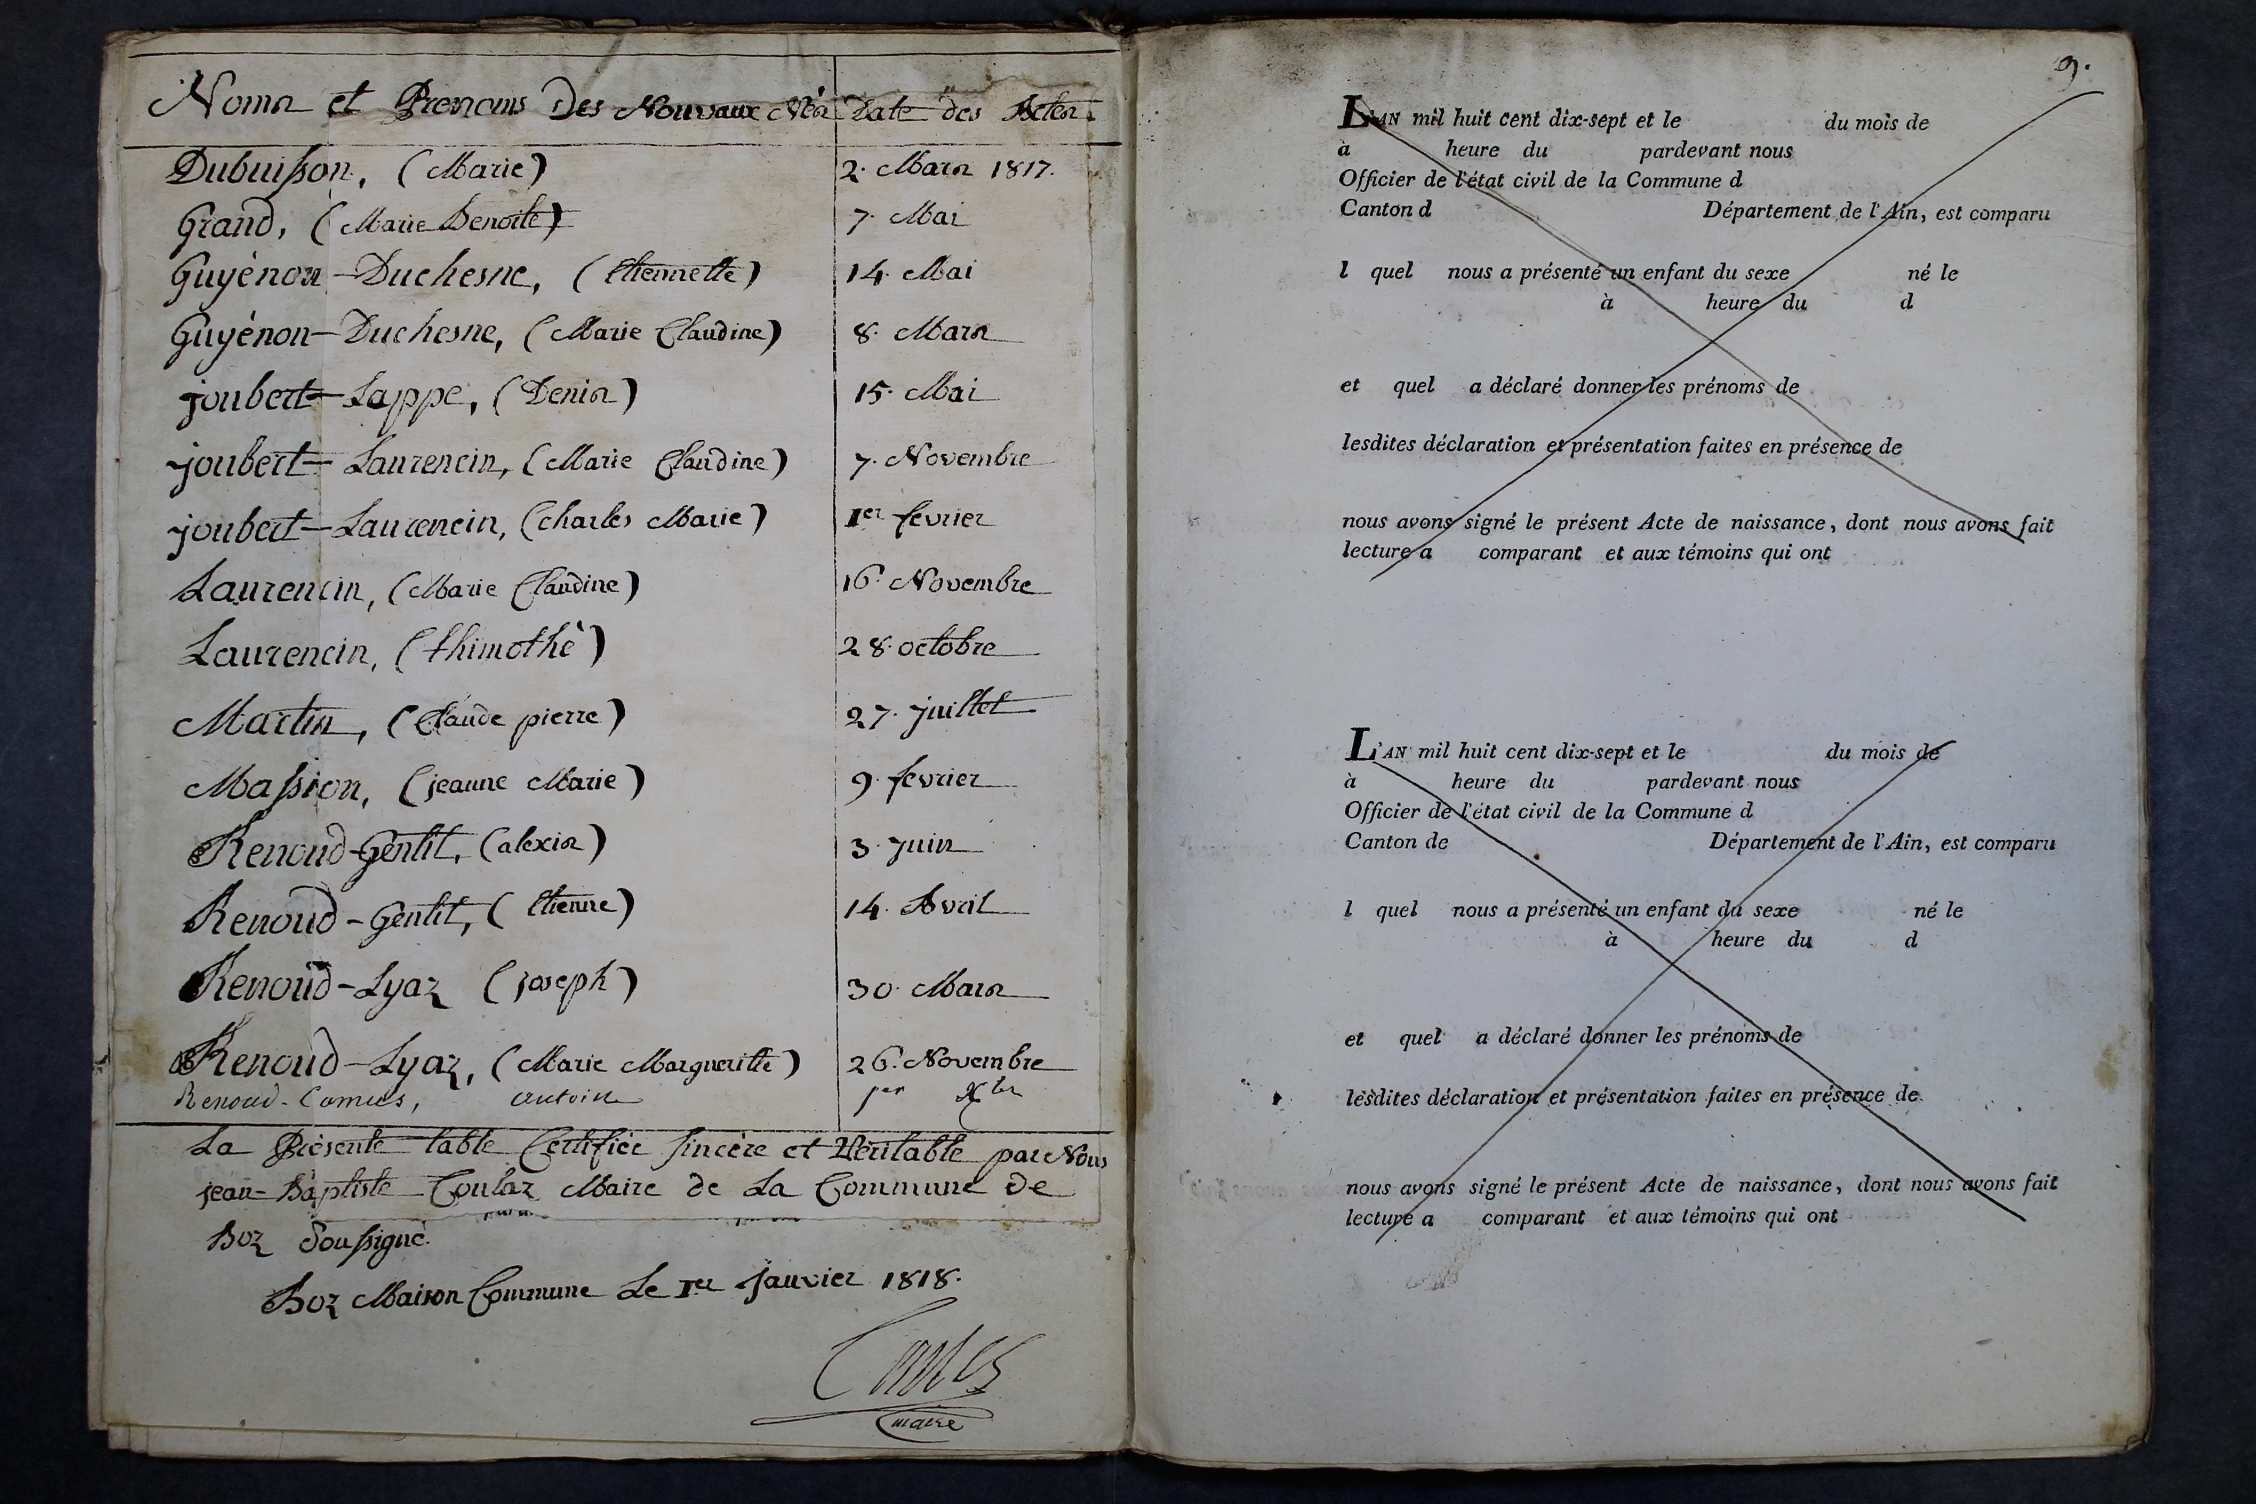 Noms et Prenoms Des Nouvaux Nés Date des Actes.
Dubuisson, (Marie) 2. Mars 1817.
Grand, (Marie Benoite) 7. Mai
Guyénon-Duchesne, (Etiennette) 14. Mai
Guyénon-Duchesne, (Marie Claudine) 8. Mars
joubert-Lappe, (Denis) 15. Mai
joubert-Laurencin, (Marie Claudine) 7. Novembre
joubert-Laurencin, (charles Marie) 1er fevrier
Laurencin, (Marie Claudine) 16. Novembre
Laurencin, (thimothé) 28. octobre
Martin, (Claude pierre) 27. juillet
Massion, (jeanne Marie) 9. fevrier
Renoud-Gentil, (alexis) 3. juin
Renoud-Gentil, (Etienne) 14. Avril
Renoud-Lyaz (joseph) 30. Mars
Renoud-Lyaz, (Marie Margueritte) 26. Novembre
Renoud-Camus, antoine per Xbre
La Présente table Certifiée sincère et Véritable par Nous
jean-Baptiste Coulaz Maire de La Commune de
Boz Soussigné.
Boz Maison Commune Le 1er Janvier 1818.
maire
9.
L'AN mil huit cent dix-sept et le du mois de
à heure du pardevant nous
Officier de l'état civil de la Commune d
Canton d Département de l'Ain, est comparu
l quel nous a présenté un enfant du sexe né le
à heure du d
et quel a déclaré donner les prénoms de
lesdites déclaration et présentation faites en présence de
nous avons signé le présent Acte de naissance, dont nous avons fait
lecture a comparant et aux témoins qui ont
L'AN mil huit cent dix-sept et le du mois de
à heure du pardevant nous
Officier de l'état civil de la Commune d
Canton de Département de l'Ain, est comparu
l quel nous a présenté un enfant du sexe né le
à heure du d
et quel a déclaré donner les prénoms de
lesdites déclaration et présentation faites en présence de
nous avons signé le présent Acte de naissance, dont nous avons fait
lecture a comparant et aux témoins qui ont